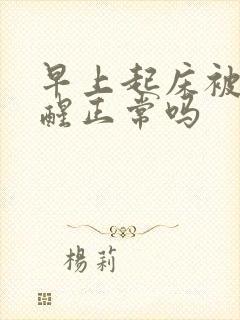 早上起床被
醒正常吗
楊莉